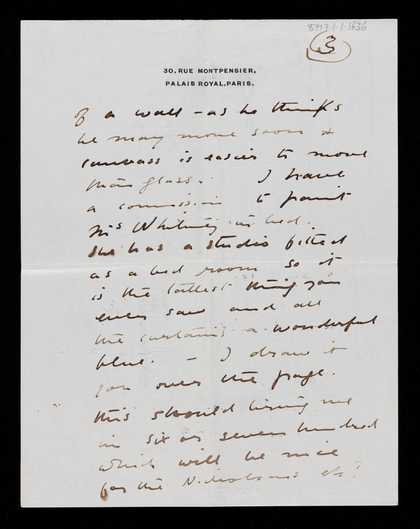 8717/1/1/1636
3
30, RUE MONTPENSIER,
PALAIS ROYAL, PARIS.
of a wall - as he thinks
he may move soon &
canvass is easier to move
than glass. I have
a commission to paint
Mrs Whitney in bed.
She has a studio fitted
as a bed room so it
is the tallest thing you
ever saw and all
the curtains a wonderful
blue. - I draw it
for over the page.
this should bring me
in six or seven hundred
which will be nice
for the Nicholsons etc!